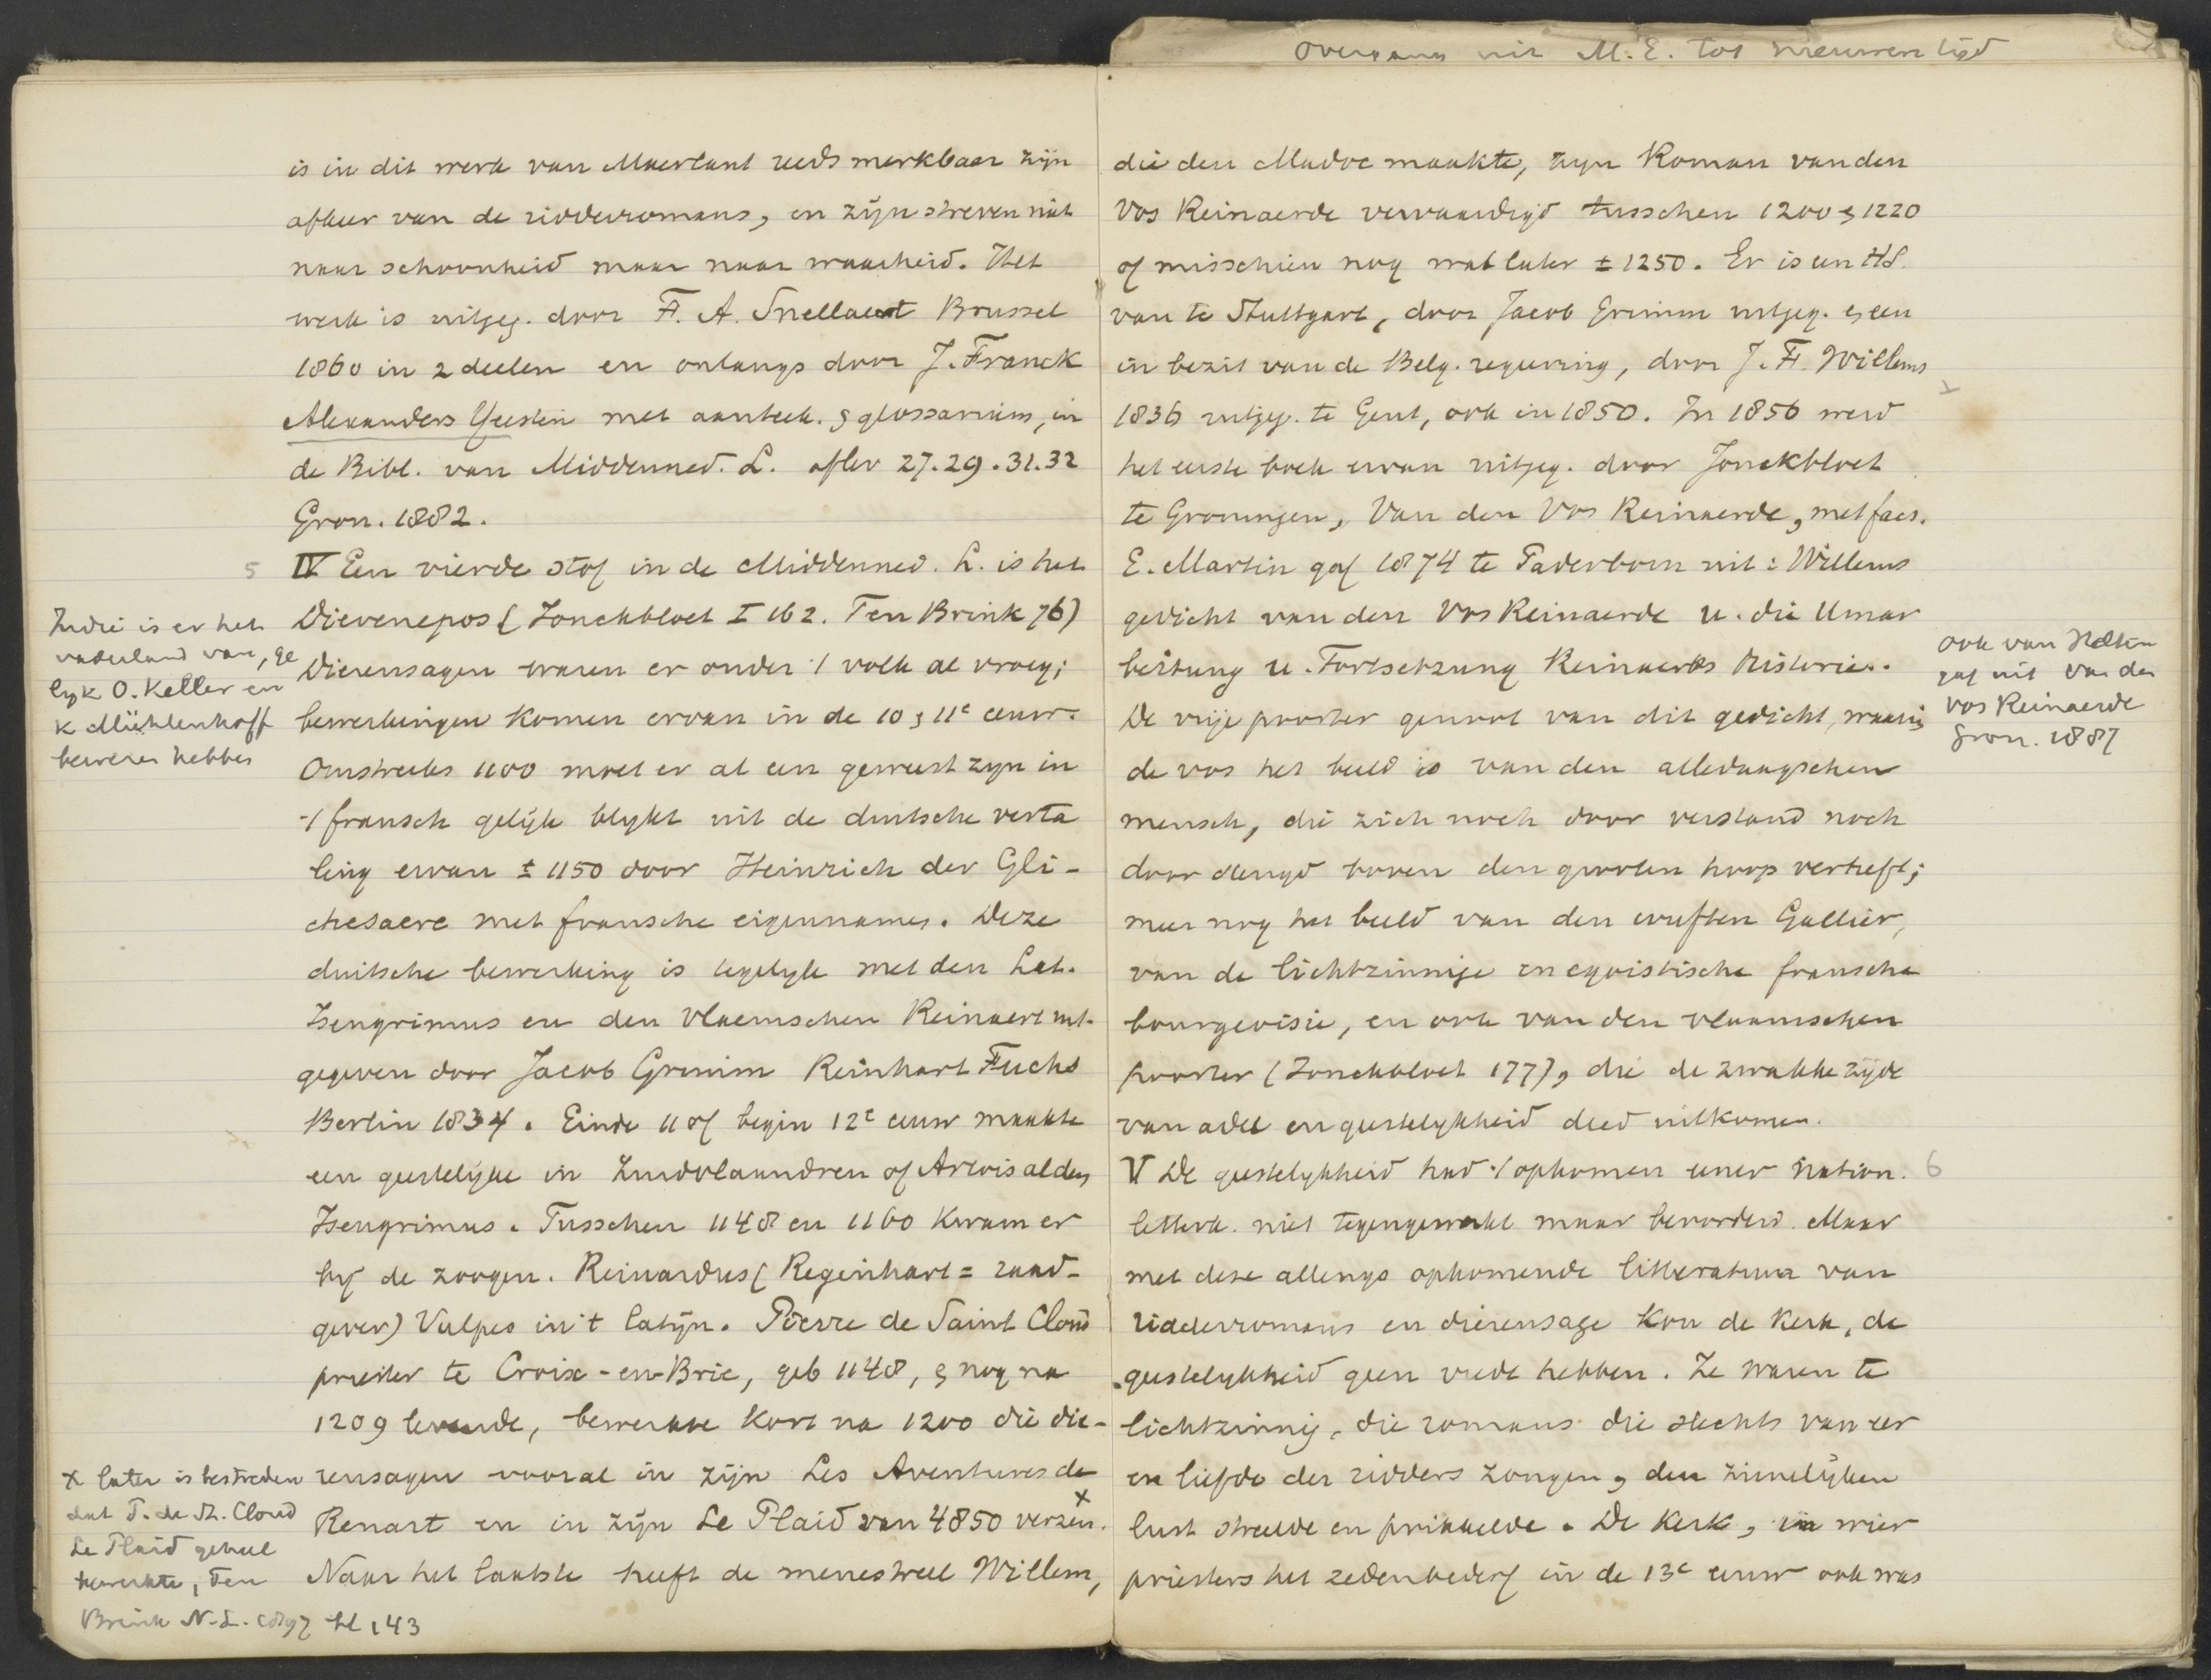 Overgang uit M.E. tot nieuwen tijd
is in dit werk van Maerlant reeds merkbaar zijn
afkeer van de ridderromans, en zijn streven niet
naar schoonheid maar naar waarheid. Het
werk is uitgeg. door F. A. Snellaert Brussel
1860 in 2 deelen en onlangs door J. Franck
Alexanders Yeesten met aanteek. & glossarium, in
de Bibl. van Middenned. L. aflev 27.29.31.32
Gron. 1882.
5 IV Een vierde stof in de Middenned. L. is het
Dierenepos (Jonckbloet I 162. Ten Brink 76)
Dierensagen waren er onder 't volk al vroeg;
bewerkingen komen ervan in de 10 & 11e eeuw.
Omstreeks 1100 moet er al een geweest zyn in
't fransch gelijk blykt uit de duitsche verta
ling ervan ± 1150 door Heinrich der Gli-
chesaere met fransche eigennamen. Deze
duitsche bewerking is tegelyk met den Lat.
Isengrimus en den Vlaemschen Reinaert uit-
gegeven door Jacob Grimm Reinhart Fuchs
Berlin 1834. Einde 11 of begin 12e eeuw maakte
een geestelijke in Zuidvlaandren of Artois alden
Isengrimus. Tusschen 1148 en 1160 kwam er
bij de zoogen. Reinardus (Regenhart = raad-
gever) Vulpes in't latijn. Pierre de Saint Cloud
priester te Croix-en-Brie, geb 1148, & nog na
1209 levende, bewerkte kort na 1200 die die-
rensagen vooral in zijn Les Aventures de
Renart en in zijn Le Plaid van 4850 verzen. x
Naar het laatste heeft de menestreel Willem,
Indië is er het
vaderland van, ge
lyk O. Keller en
K Müllenhoff
beweren hebben
x later is bestreden
dat P. de St. Cloud
Le Plaid geheel
bewerkte, Ten
Brink N.L. 1897 bl 143
die den Madoc maakte, zyn Roman van den
Vos Reinaerde vervaardigd tusschen 1200 & 1220
of misschien nog wat later ± 1250. Er is een HS.
van te Stuttgart, door Jacob Grimm uitgeg. & een
in bezit van de Belg. regeering, door J. F. Willems
1836 uitgeg. te Gent, ook in 1850. In 1856 werd
het eerste boek ervan uitgeg. door Jonckbloet
te Groningen, Van den Vos Reinaerde, met facs.
E. Martin gaf 1874 te Paderborn uit: Willems
gedicht van den Vos Reinaerde u. die Umar
beitung u. Fortsetzung Reinaerts Historie.
De vrije poorter genoot van dit gedicht, waarin
de vos het beeld is van den alledaagschen
mensch, die zich noch door verstand noch
door deugd boven den grooten hoop verheft;
meer nog het beeld van den wuften Gallier,
van de lichtzinnige en egoistische fransche
bourgeoisie, en ook van den vlaamschen
poorter (Jonckbloet 177), die de zwakke zijde
van adel en geestelykheid deed uitkomen.
V De geestelykheid had 't opkomen eener nation. 6
letterk. niet tegengewerkt maar bevorderd. Maar
met deze allengs opkomende litteratuur van
ridderromans en dierensage kon de Kerk, de
geestelykheid geen vrede hebben. Ze waren te
lichtzinnig, die romans die slechts van eer
en liefde der ridders zongen, den zinnelijken
lust streelde en prikkelde. De Kerk, in wier
priesters het zedenbederf in de 13e eeuw ook was
ook van Helten
gaf uit Van den
Vos Reinaerde
Gron. 1887